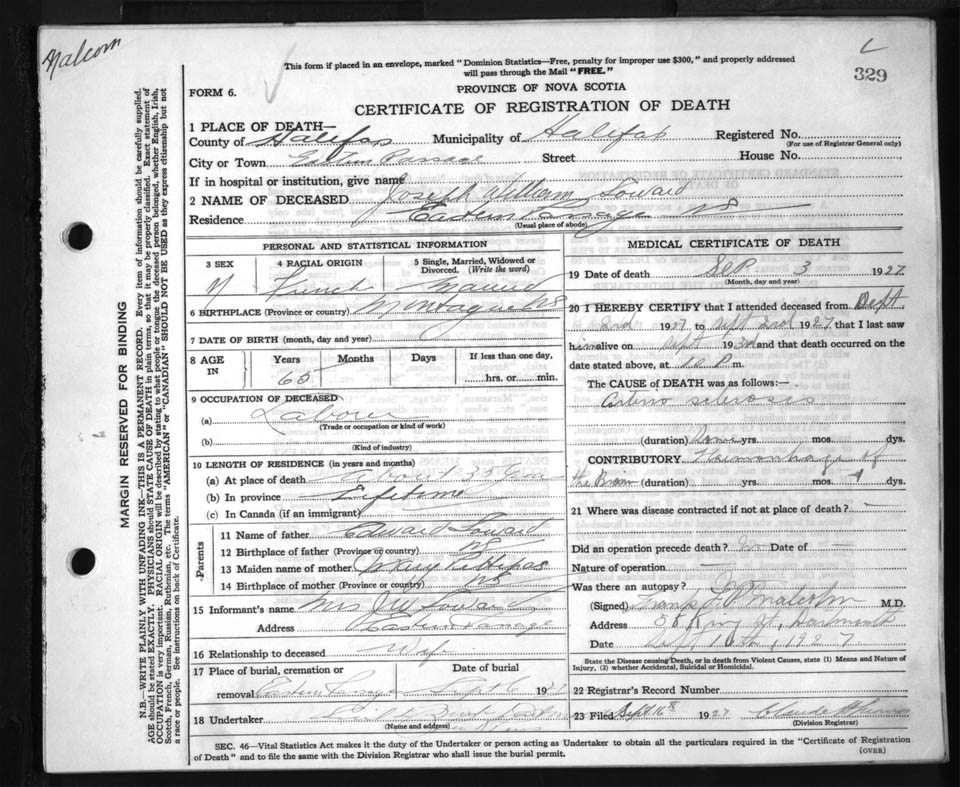 Malcom
L
329
This form if placed in an envelope, marked "Dominion Statistics—Free, penalty for improper use $300," and properly addressed
will pass through the Mail "FREE."
FORM 6.
PROVINCE OF NOVA SCOTIA
CERTIFICATE OF REGISTRATION OF DEATH
1 PLACE OF DEATH—
County of Halifax Municipality of Halifax Registered No.
(For use of Registrar General only)
City or Town Eastern Passage Street House No.
If in hospital or institution, give name
2 NAME OF DECEASED Joseph William Soward
Residence Eastern Passage NS
(Usual place of abode)
PERSONAL AND STATISTICAL INFORMATION
3 SEX
4 RACIAL ORIGIN
5 Single, Married, Widowed or Divorced. (Write the word)
M French Married
6 BIRTHPLACE (Province or country) Montague NS
7 DATE OF BIRTH (month, day and year)
8 AGE IN Years Months Days If less than one day,
65 hrs. or min.
9 OCCUPATION OF DECEASED
(a) Labourer
(Trade or occupation or kind of work)
(b)
(Kind of industry)
10 LENGTH OF RESIDENCE (in years and months)
(a) At place of death about 35
(b) In province Lifetime
(c) In Canada (if an immigrant)
Parents
11 Name of father Edward Soward
12 Birthplace of father (Province or country) NS
13 Maiden name of mother Mary
14 Birthplace of mother (Province or country) NS
15 Informant's name Mrs Soward
Address Eastern Passage
16 Relationship to deceased Wife
17 Place of burial, cremation or removal Date of burial
Eastern Passage Sept 6 1927
18 Undertaker
(Name and address)
MEDICAL CERTIFICATE OF DEATH
19 Date of death Sep 3 1927
(Month, day and year)
20 I HEREBY CERTIFY that I attended deceased from Sept
2nd 1927 to Sept 2nd 1927 that I last saw
him alive on Sept 193 and that death occurred on the
date stated above, at 10 P. m.
The CAUSE of DEATH was as follows:—
Arterio sclerosis
(duration) yrs. mos. dys.
CONTRIBUTORY Haemorrhage of
the Brain (duration) yrs. mos. 1 dys.
21 Where was disease contracted if not at place of death?
Did an operation precede death? No Date of
Nature of operation
Was there an autopsy?
(Signed) Malcolm M.D.
Address King St, Dartmouth
Date Sept 10th, 1927
State the Disease causing Death, or in death from Violent Causes, state (1) Means and Nature of Injury, (2) whether Accidental, Suicidal or Homicidal.
22 Registrar's Record Number
23 Filed Sept 16th 1927 Claude
(Division Registrar)
SEC. 46—Vital Statistics Act makes it the duty of the Undertaker or person acting as Undertaker to obtain all the particulars required in the "Certificate of Registration
of Death" and to file the same with the Division Registrar who shall issue the burial permit.
(OVER)
MARGIN RESERVED FOR BINDING
N.B.—WRITE PLAINLY WITH UNFADING INK—THIS IS A PERMANENT RECORD. Every item of information should be carefully supplied.
AGE should be stated EXACTLY. PHYSICIANS should STATE CAUSE OF DEATH in plain terms, so that it may be properly classified. Exact statement of
OCCUPATION is very important. RACIAL ORIGIN will be described by stating to what people or tongue the deceased person belonged, whether English, Irish,
Scotch, French, German, Russian, Ruthenian, etc. The terms "AMERICAN" or "CANADIAN" SHOULD NOT BE USED as they express citizenship but not
a race or people. See instructions on back of Certificate.